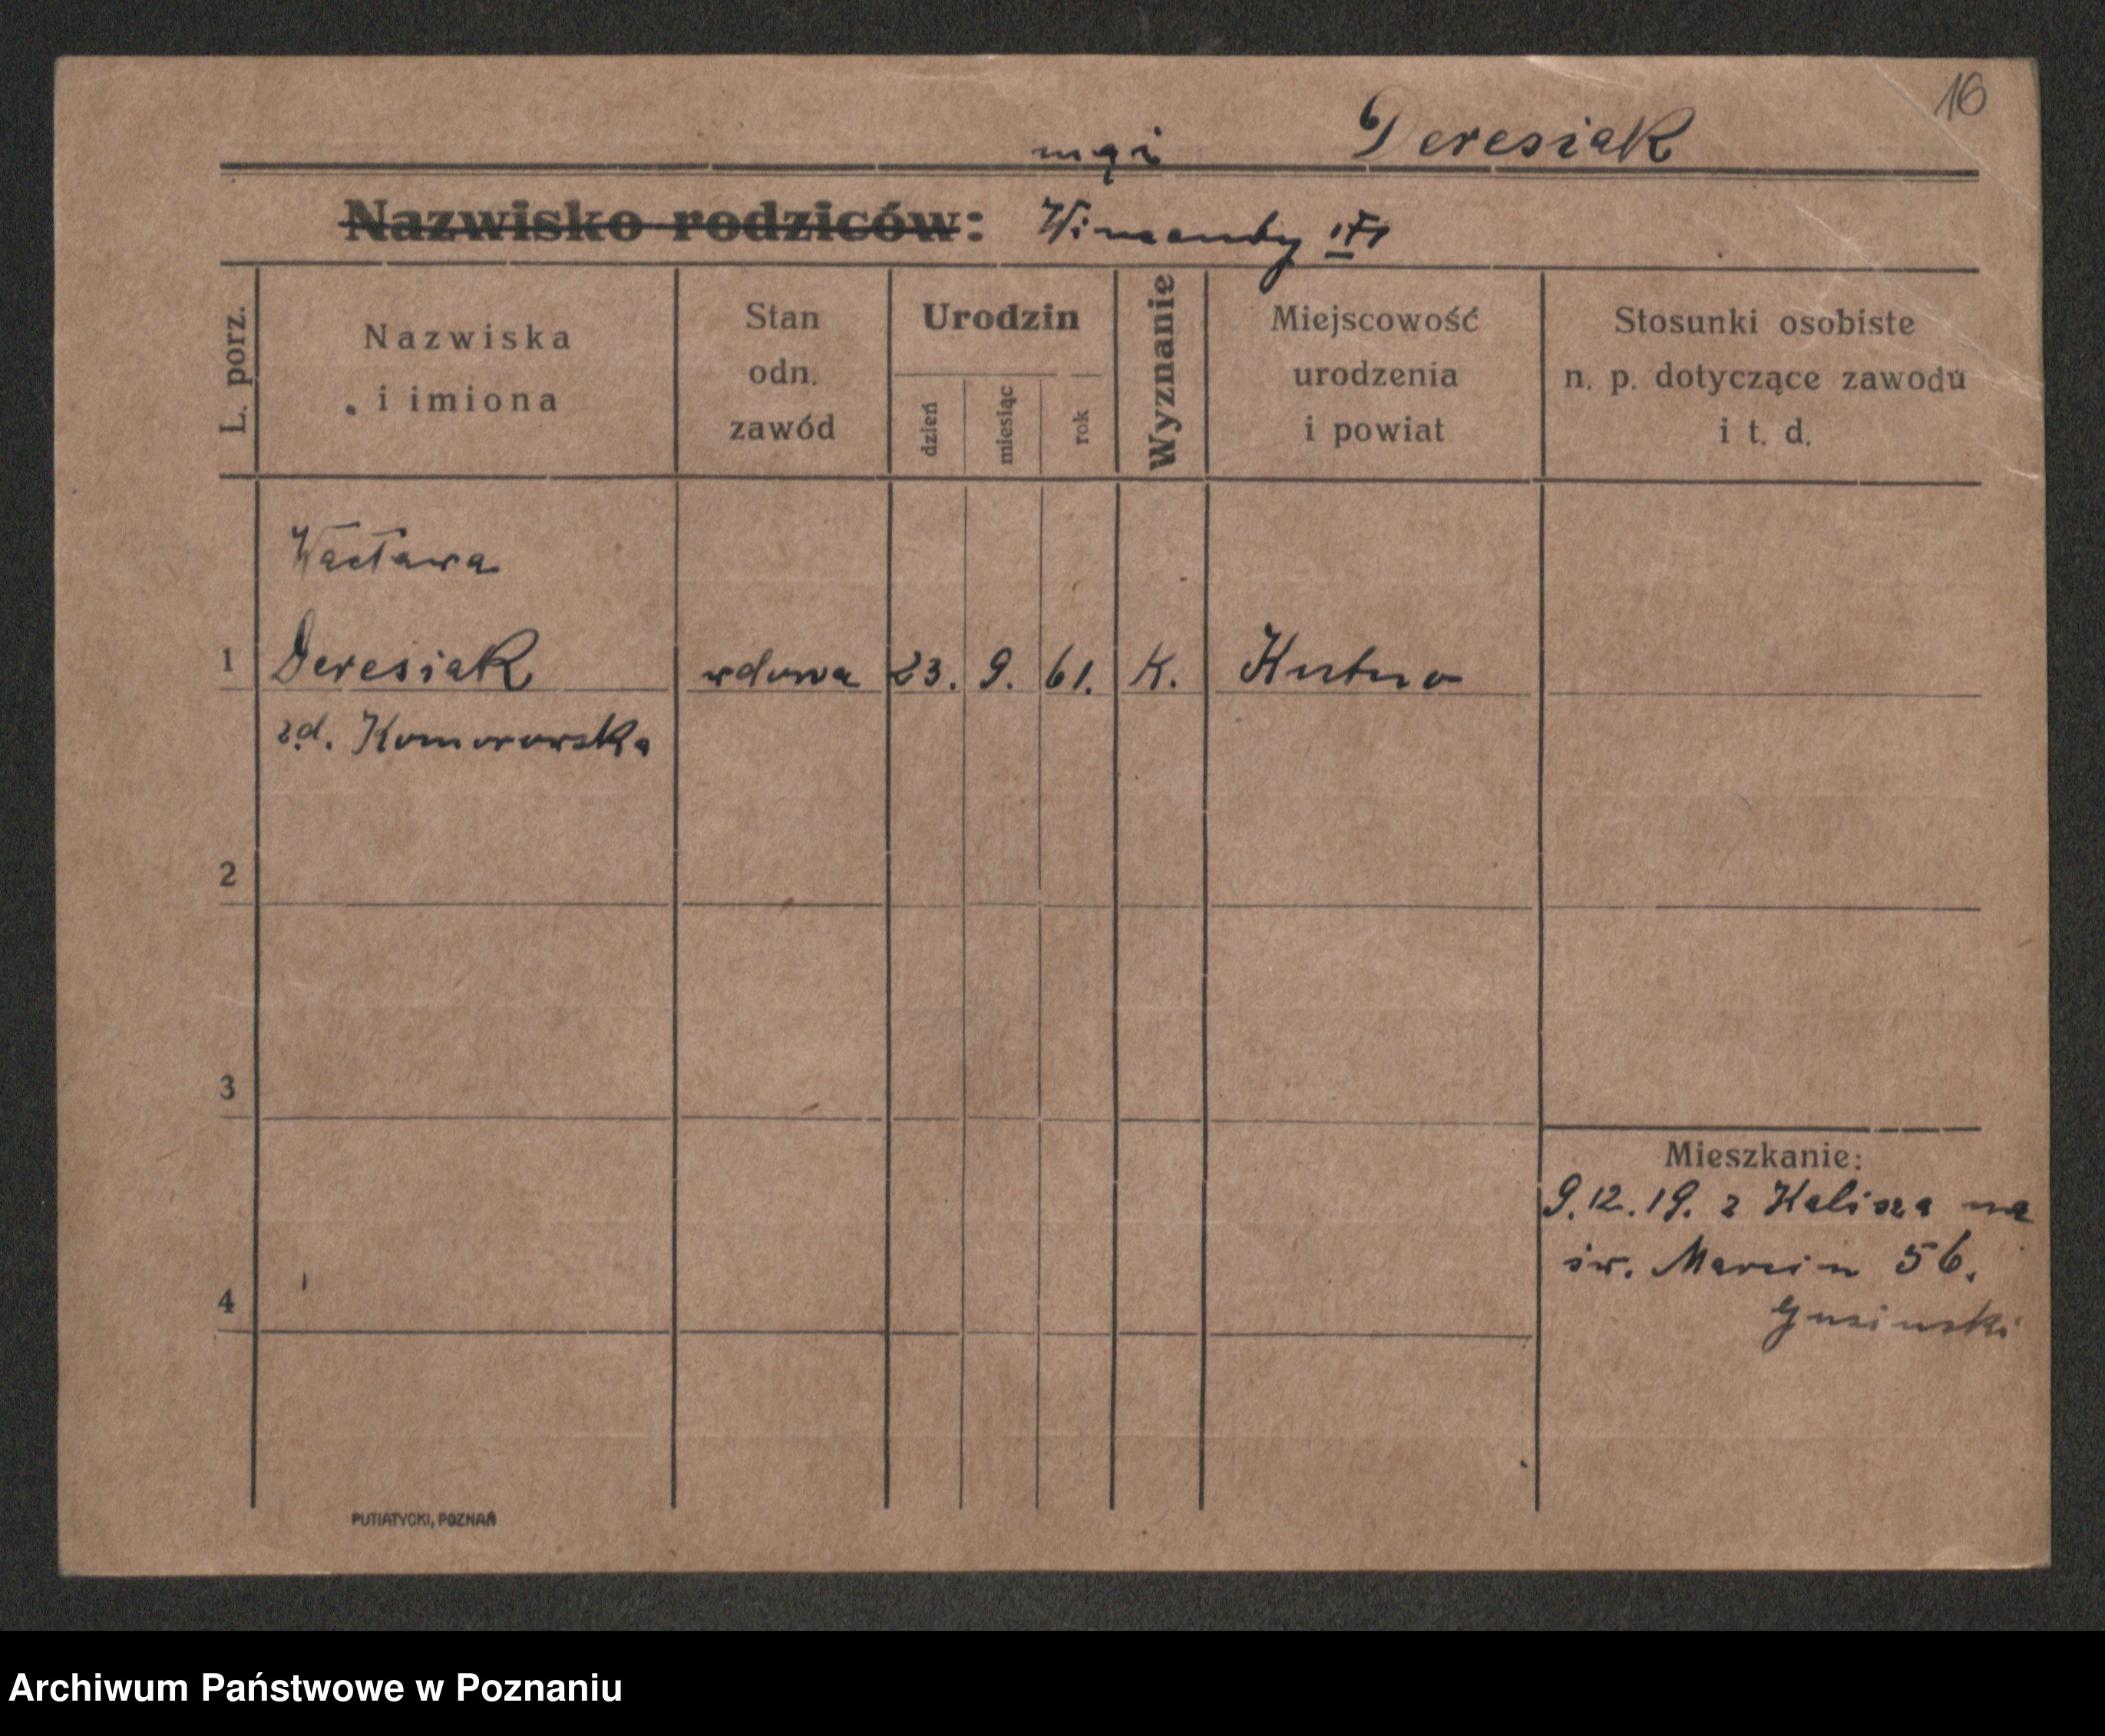 16
mąż Deresiak
Nazwisko rodziców:
L. porz.
Nazwiska
i imiona
Stan
odn.
zawód
Urodzin
dzień
miesiąc
rok
Wyznanie
Miejscowość
urodzenia
i powiat
Stosunki osobiste
n. p. dotyczące zawodu
i t. d.
Wacława
1 Deresiak wdowa 23. 9. 61. K. Kutno
zd. Komorowska
2
3
Mieszkanie:
9.12.19. z Kalisza na
św. Marcin 56.
4
PUTIATYCKI, POZNAŃ
Archiwum Państwowe w Poznaniu